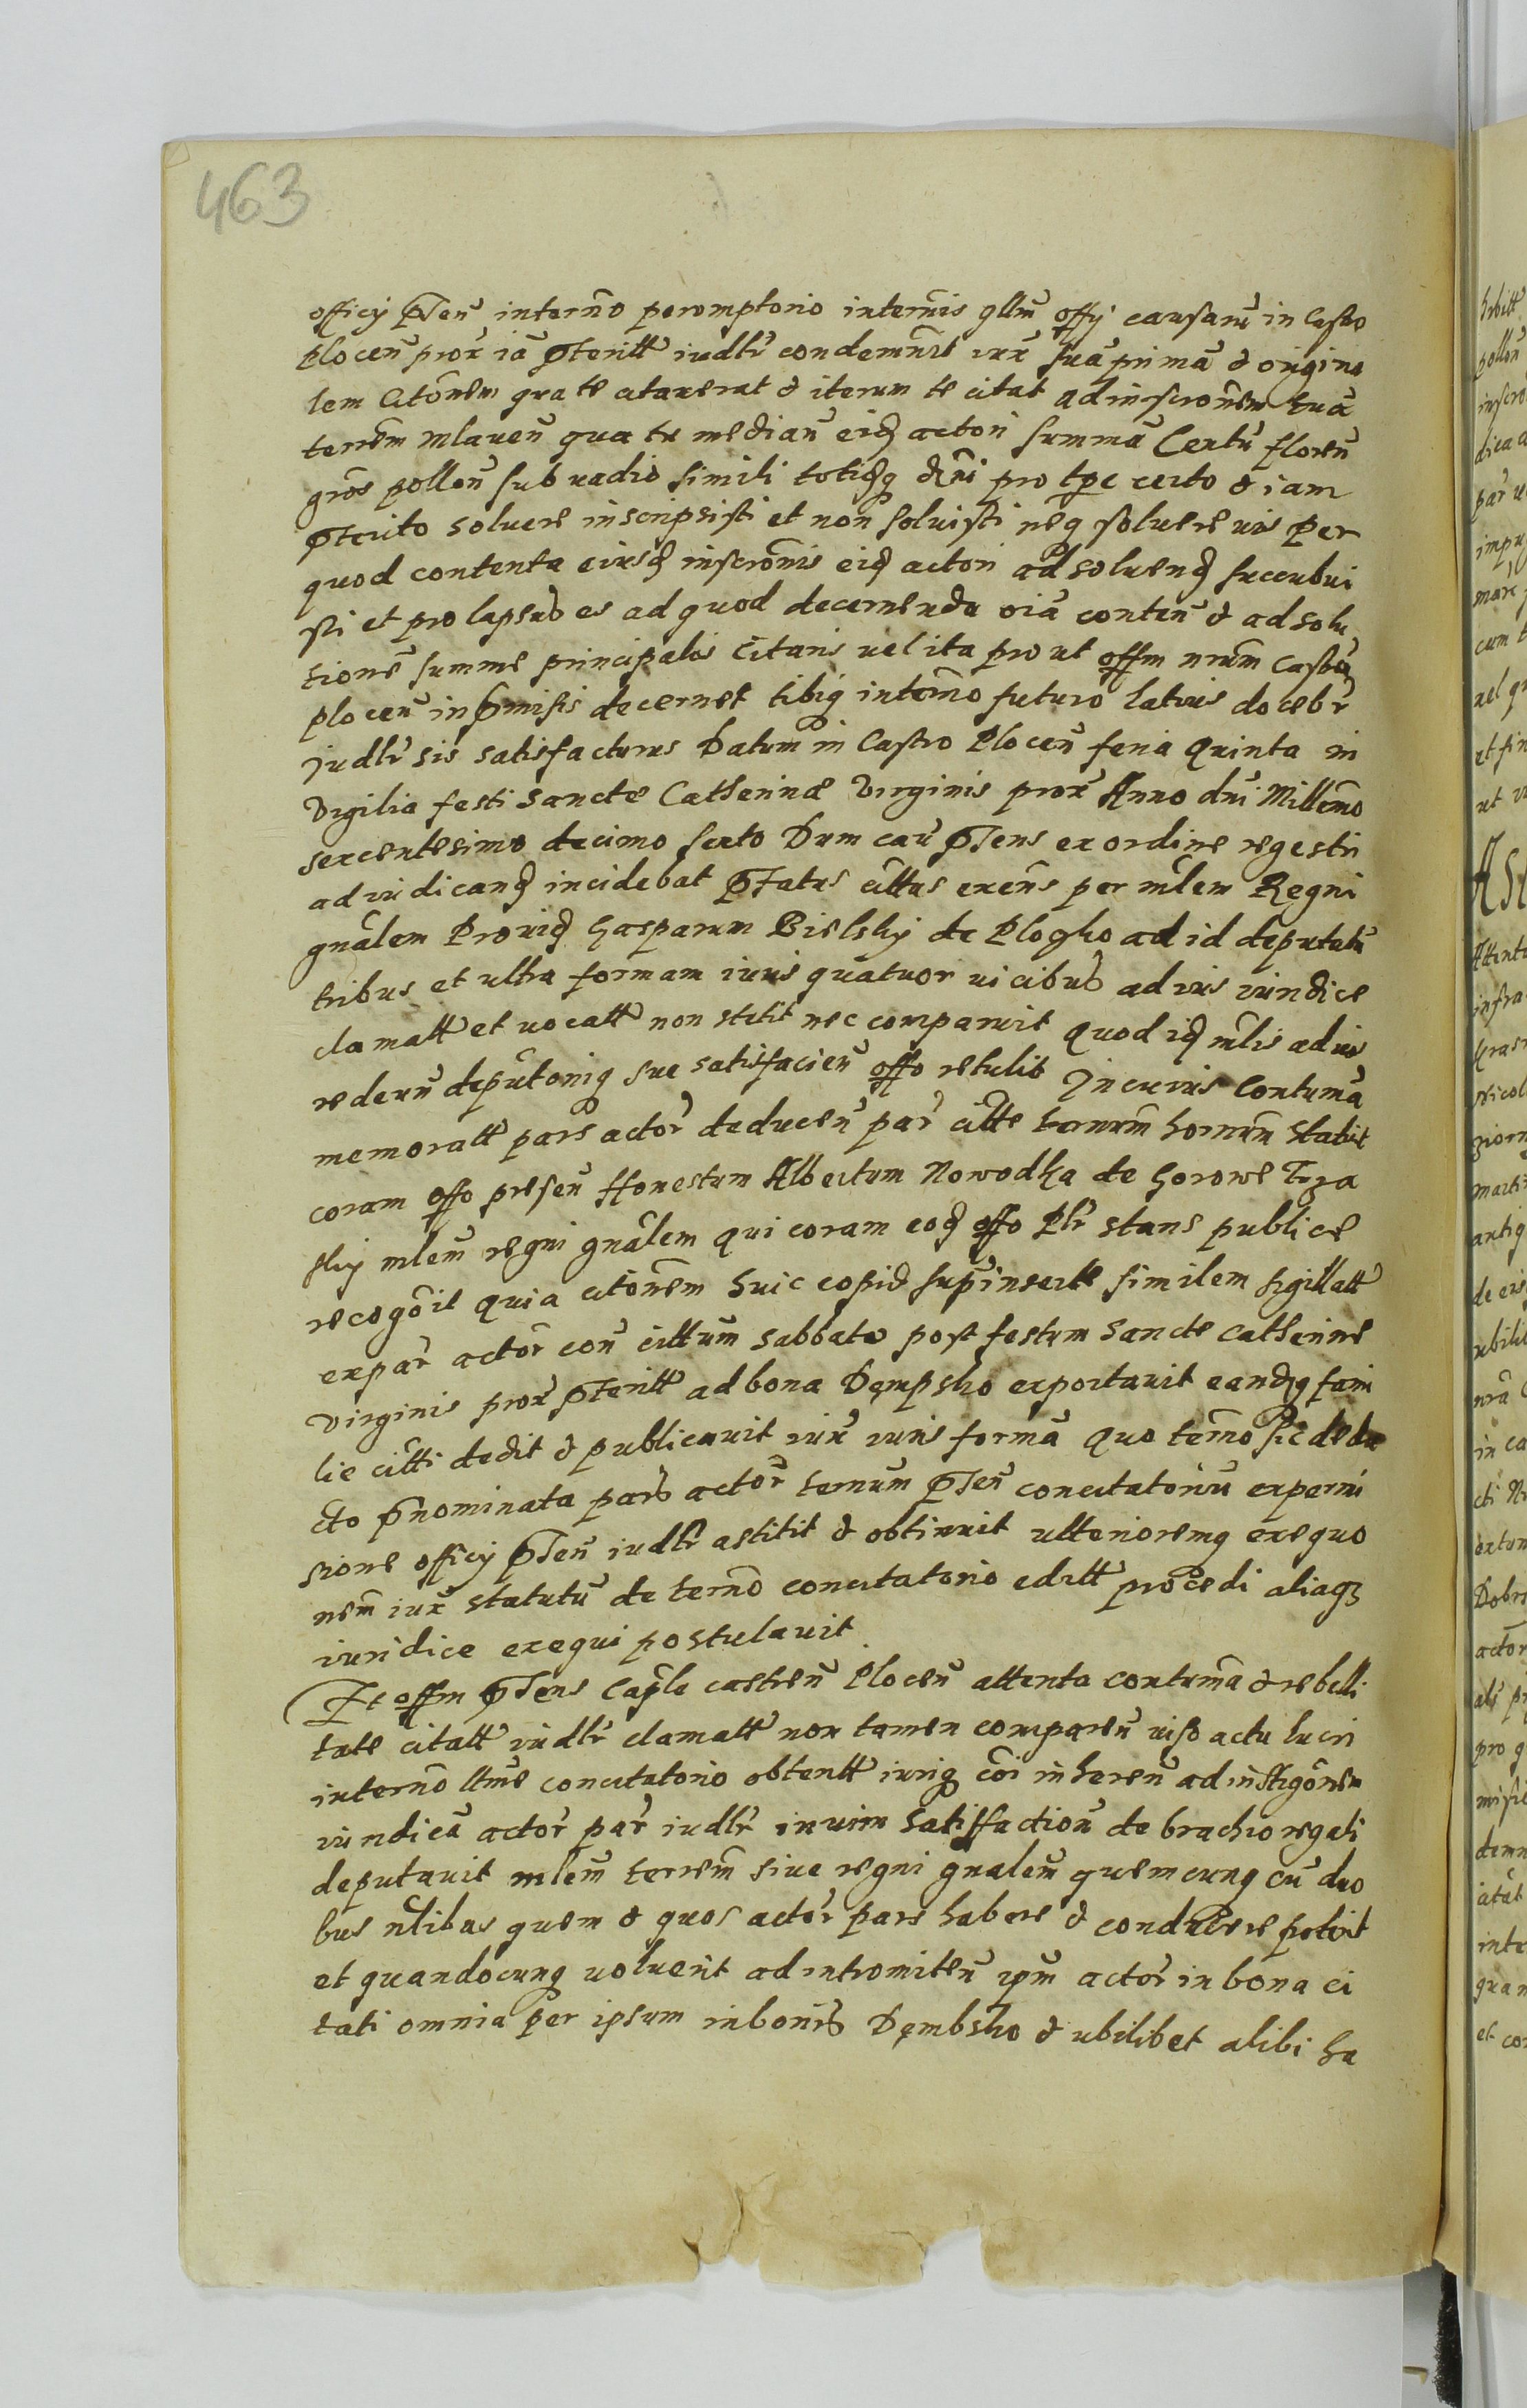 463
officÿ p̃n̄tem̄ in termō peromptorio in termīs q̄llm̄ offÿ causarū in Castro
plocen̄ prox̄ iā p̃terītt iudl̄r condemn̄it iux̄ suā primā & origina
lem Citōnem qua te citauerat & iterum te citat ad inscrōnem tuā
terrēm Mlauen̄ qua tu mediān̄ eid̨ actori summā Centū floren̄
grōs pollōn sub vadio simili totiq̨ dn̄i pro tp̄e certo & iam
p̃terito soluere inscripsisti et non soluisti neq̨ soluere uis per
quod contenta eiusd̨ inscrōnis eid̨ actori ad soluend̨ succubui
sti et prolapsus es ad quod decernenda oīa conten̄ & ad solu
tionē summe principalis Citaris uel ita pro ut offm nrūm Castrēn
plocen̄ in p̃misis decernet tibiq̨ in termō futuro latius docebr̄
Iudl̄r sis satisfacturus Datum in Castro Plocen̄ feria Quinta in
Vigilia festi Sanctæ Catherinæ Virginis prox̄ Anno dn̄i Millēmo
sexcentesimo decimo sexto Dum cau̅ p̃n̄tens ex ordine regestri
ad iudicand̨ incidebat p̃fatus cittus exēns per mīlem Regni
gn̄alem Prouid̨ Gasparum Bielskÿ de Plocko ad id deputatū
tribus et ultra formam iuris quatuor uicibus ad ius iuridice
clamatt et uocatt non stetit nec comparuit Quod id̨ mīlis ad ius
redeun̄ deputōniq̨ sue satisfacien̄ offo retulit In cuius Contumā
memoratt pars actor̄ deducen̄ par̄ citte termn̄m hornūm Statuit
coram offo presen̄ Honestum Albertum Nowodka de Gorowe Trza
skÿ mīlem̄ regni gn̄alem qui coram eod̨ offo Pl̄r stans publice
recogōit quia citōnem huic copiæ sup̃inserte similem sigillatt
ex par̄ actor̄ con̄ cittum Sabbato post festum Sancte Catherine
Virginis prox̄ p̃teritt ad bona Dęmpsko exportauit eandq̨ fami
lie citti dedit & publicauit iux̄ iuris formā Quo termō sic dedu
cto p̃nominata pars actor̄ termn̄m p̃n̄ten̄ concitatoriū ex permi
sione officÿ p̃n̄ten̄ iudl̄r astitit & obtinuit ulterioremq̨ exequo
nem̄ iux̄ statutū de termō concitatorio editt procedi aliaq̨
iuridice exequi postulauit
Et offm p̃n̄tens Capl̄e castren̄ Plocen̄ attenta contumā & rebelli
tate citatt iudl̄r clamatt non tamen comparen̄ uiso actu lucri
in termō ltīme concitatorio obtentt iuriq̨ cōi inheren̄ ad instigōnem
iuridicā actor̄ par̄ iudl̄r in uim satisfaction̄ de brachio regali
deputauit mīlem̄ terrem̄ siue regni gnalem̄ quemcunq̨ cū duo
bus nl̄ibus quem & quos actor̄ pars habere & conducere poterit
et quandocunq̨ uoluerit ad intromiten̄ ipm̄ actor̄ in bona ci
tati omnia per ipsum in bonis Dęmbsko & ubilibet alibi ha